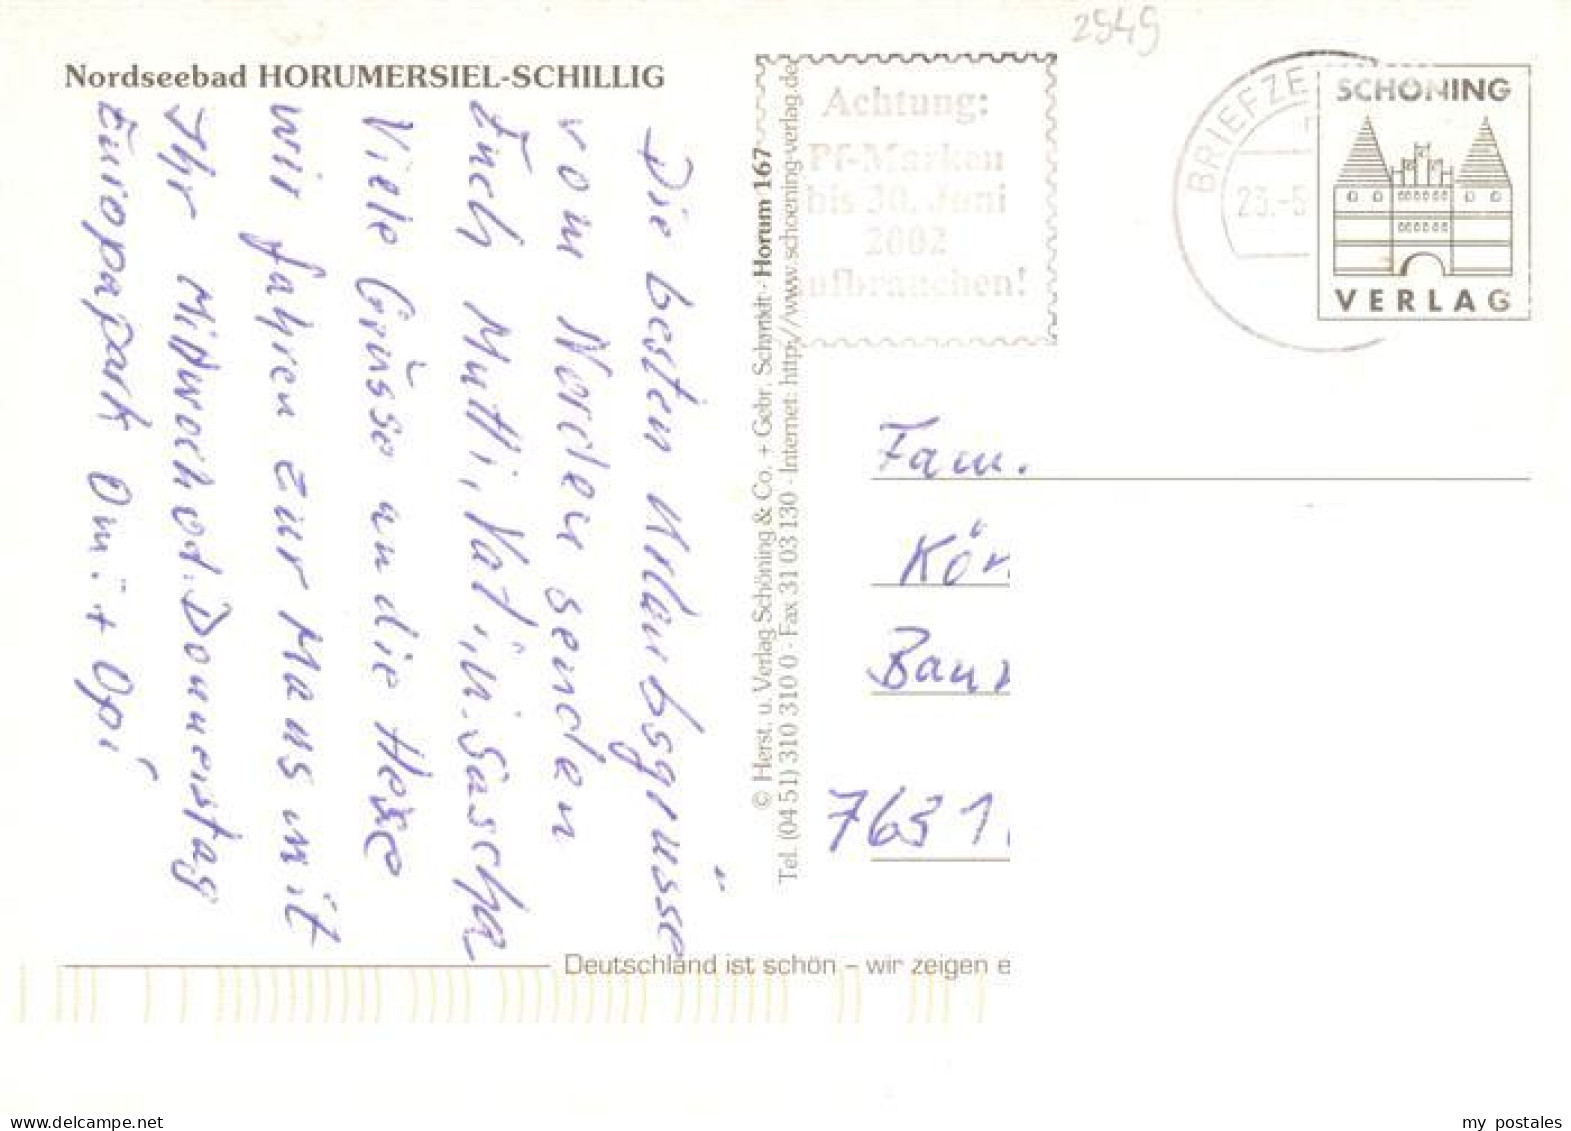 2949
Nordseebad HORUMERSIEL-SCHILLIG
Die besten Urlaubsgrüsse
vom Norden senden
Euch Mutti, Vati, u. Sascha
Viele Grüsse an die Hexe
wir fahren zur Maus mit
Ihr Mittwoch od. Donnerstag
Europapark Omi + Opi
© Herst. u. Verlag Schöning & Co. + Gebr. Schmidt · Horum 167
Tel. (04 51) 310 310 0 · Fax 31 03 130 · Internet: http://www.schoening-verlag.de
Achtung:
Pf-Marken
bis 30. Juni
2002
aufbrauchen!
BRIEFZE
23.-5
SCHÖNING
VERLAG
Fam.
Kör
Bau
7631
Deutschland ist schön – wir zeigen e
www.delcampe.net
my_postales